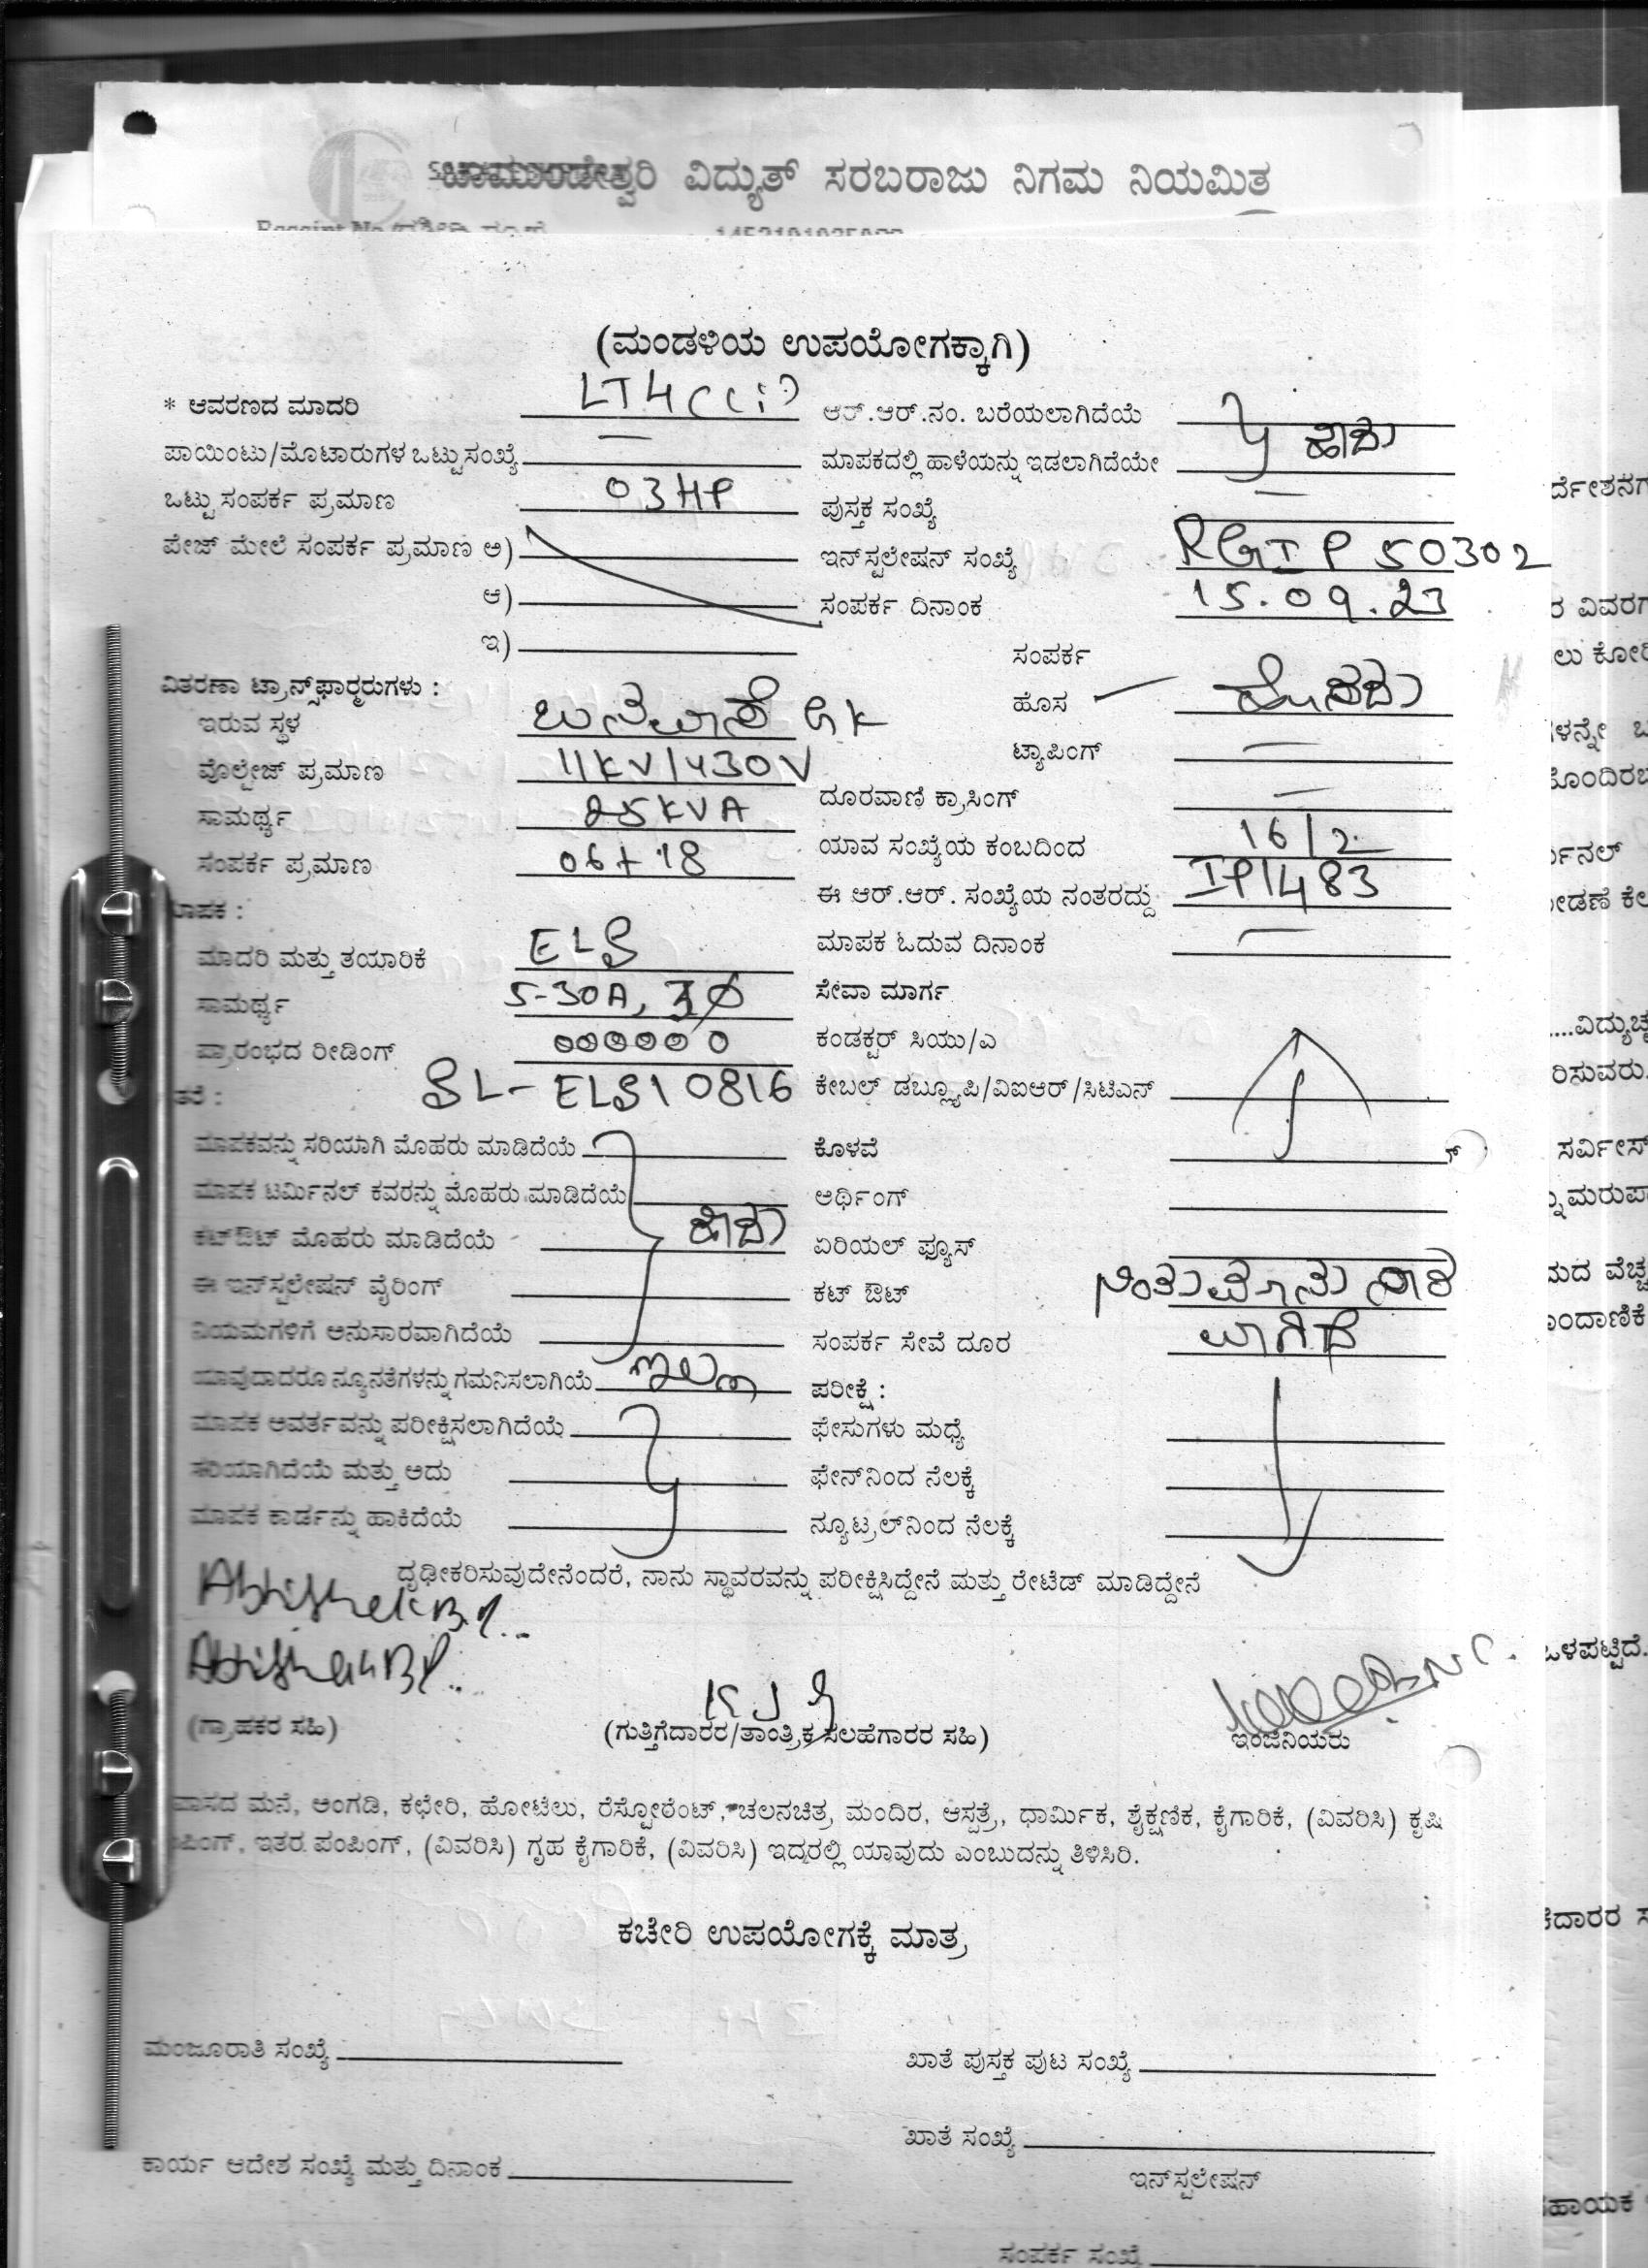 ಚಾಮುಂಡೇಶ್ವರಿ ವಿದ್ಯುತ್ ಸರಬರಾಜು ನಿಗಮ ನಿಯಮಿತ
(ಮಂಡಳಿಯ ಉಪಯೋಗಕ್ಕಾಗಿ)
* ಆವರಣದ ಮಾದರಿ LT4(ci) ಆರ್.ಆರ್.ನಂ. ಬರೆಯಲಾಗಿದೆಯೆ
ಪಾಯಿಂಟು/ಮೊಟಾರುಗಳ ಒಟ್ಟು ಸಂಖ್ಯೆ — ಮಾಪಕದಲ್ಲಿ ಹಾಳೆಯನ್ನು ಇಡಲಾಗಿದೆಯೇ ಹೌದು
ಒಟ್ಟು ಸಂಪರ್ಕ ಪ್ರಮಾಣ 03HP ಪುಸ್ತಕ ಸಂಖ್ಯೆ —
ಪೇಜ್ ಮೇಲೆ ಸಂಪರ್ಕ ಪ್ರಮಾಣ ಅ) ಇನ್‌ಸ್ಟಲೇಷನ್ ಸಂಖ್ಯೆ RGIP 50302
ಆ) ಸಂಪರ್ಕ ದಿನಾಂಕ 15.09.23
ಇ) ಸಂಪರ್ಕ
ವಿತರಣಾ ಟ್ರಾನ್ಸ್‌ಫಾರ್‍ಮರುಗಳು :
ಇರುವ ಸ್ಥಳ GK ಹೊಸ ಹೊಸದು
ವೊಲ್ಟೇಜ್ ಪ್ರಮಾಣ 11KV/430V ಟ್ಯಾಪಿಂಗ್ —
ಸಾಮರ್ಥ್ಯ 25KVA ದೂರವಾಣಿ ಕ್ರಾಸಿಂಗ್ —
ಸಂಪರ್ಕ ಪ್ರಮಾಣ 06+18 ಯಾವ ಸಂಖ್ಯೆಯ ಕಂಬದಿಂದ 16/2
ಾಪಕ : ಈ ಆರ್.ಆರ್. ಸಂಖ್ಯೆಯ ನಂತರದ್ದು IP1483
ಮಾದರಿ ಮತ್ತು ತಯಾರಿಕೆ ELS ಮಾಪಕ ಓದುವ ದಿನಾಂಕ —
ಸಾಮರ್ಥ್ಯ 5-30A, 3Ø ಸೇವಾ ಮಾರ್ಗ
ಪ್ರಾರಂಭದ ರೀಡಿಂಗ್ 000000 ಕಂಡಕ್ಟರ್ ಸಿಯು/ಎ
ತರೆ : SL-ELS10816 ಕೇಬಲ್ ಡಬ್ಲ್ಯೂಪಿ/ವಿಐಆರ್/ಸಿಟಿಎಸ್
ಮಾಪಕವನ್ನು ಸರಿಯಾಗಿ ಮೊಹರು ಮಾಡಿದೆಯೆ ಕೊಳವೆ
ಮಾಪಕ ಟರ್ಮಿನಲ್ ಕವರನ್ನು ಮೊಹರು ಮಾಡಿದೆಯೆ ಅರ್ಥಿಂಗ್
ಕಟ್‌ಔಟ್ ಮೊಹರು ಮಾಡಿದೆಯೆ ಹೌದು ಏರಿಯಲ್ ಫ್ಯೂಸ್
ಈ ಇನ್‌ಸ್ಟಲೇಷನ್ ವೈರಿಂಗ್ ಕಟ್ ಔಟ್
ನಿಯಮಗಳಿಗೆ ಅನುಸಾರವಾಗಿದೆಯೆ ಸಂಪರ್ಕ ಸೇವೆ ದೂರ
ಯಾವುದಾದರೂ ನ್ಯೂನತೆಗಳನ್ನು ಗಮನಿಸಲಾಗಿಯೆ ಇಲ್ಲ ಪರೀಕ್ಷೆ :
ಮಾಪಕ ಆವರ್ತವನ್ನು ಪರೀಕ್ಷಿಸಲಾಗಿದೆಯೆ ಫೇಸುಗಳು ಮಧ್ಯೆ
ಸರಿಯಾಗಿದೆಯೆ ಮತ್ತು ಅದು ಫೇಸ್‌ನಿಂದ ನೆಲಕ್ಕೆ
ಮಾಪಕ ಕಾರ್ಡನ್ನು ಹಾಕಿದೆಯೆ ನ್ಯೂಟ್ರಲ್‌ನಿಂದ ನೆಲಕ್ಕೆ
ದೃಢೀಕರಿಸುವುದೇನೆಂದರೆ, ನಾನು ಸ್ಥಾವರವನ್ನು ಪರೀಕ್ಷಿಸಿದ್ದೇನೆ ಮತ್ತು ರೇಟೆಡ್ ಮಾಡಿದ್ದೇನೆ
Abhishek B.P.
Abhishek B.P.
(ಗ್ರಾಹಕರ ಸಹಿ) (ಗುತ್ತಿಗೆದಾರರ/ತಾಂತ್ರಿಕ ಸಲಹೆಗಾರರ ಸಹಿ) ಇಂಜಿನಿಯರು
ವಾಸದ ಮನೆ, ಅಂಗಡಿ, ಕಛೇರಿ, ಹೋಟೆಲು, ರೆಸ್ಟೋರೆಂಟ್, ಚಲನಚಿತ್ರ, ಮಂದಿರ, ಆಸ್ಪತ್ರೆ, ಧಾರ್ಮಿಕ, ಶೈಕ್ಷಣಿಕ, ಕೈಗಾರಿಕೆ, (ವಿವರಿಸಿ) ಕೃಷಿ
ಪಿಂಗ್, ಇತರ ಪಂಪಿಂಗ್, (ವಿವರಿಸಿ) ಗೃಹ ಕೈಗಾರಿಕೆ, (ವಿವರಿಸಿ) ಇದರಲ್ಲಿ ಯಾವುದು ಎಂಬುದನ್ನು ತಿಳಿಸಿರಿ.
ಕಚೇರಿ ಉಪಯೋಗಕ್ಕೆ ಮಾತ್ರ
ಮಂಜೂರಾತಿ ಸಂಖ್ಯೆ ಖಾತೆ ಪುಸ್ತಕ ಪುಟ ಸಂಖ್ಯೆ
ಖಾತೆ ಸಂಖ್ಯೆ
ಕಾರ್ಯ ಆದೇಶ ಸಂಖ್ಯೆ ಮತ್ತು ದಿನಾಂಕ ಇನ್‌ಸ್ಟಲೇಷನ್
ಸಂಪರ್ಕ ಸಂಖ್ಯೆ